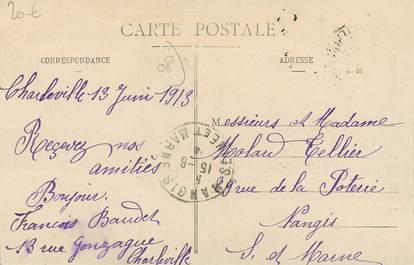 20-€
CARTE POSTALE
CORRESPONDANCE
ADRESSE
Charleville 13 Juin 1913
Recevez nos
amitiés
Bonjour.
François Baudet
13 rue Gonzague
Charleville
Messieurs et Madame
Molard Tellier
rue de la Poterie
Nangis
S. et Marne
NANGIS
SEINE ET MARNE
15-8